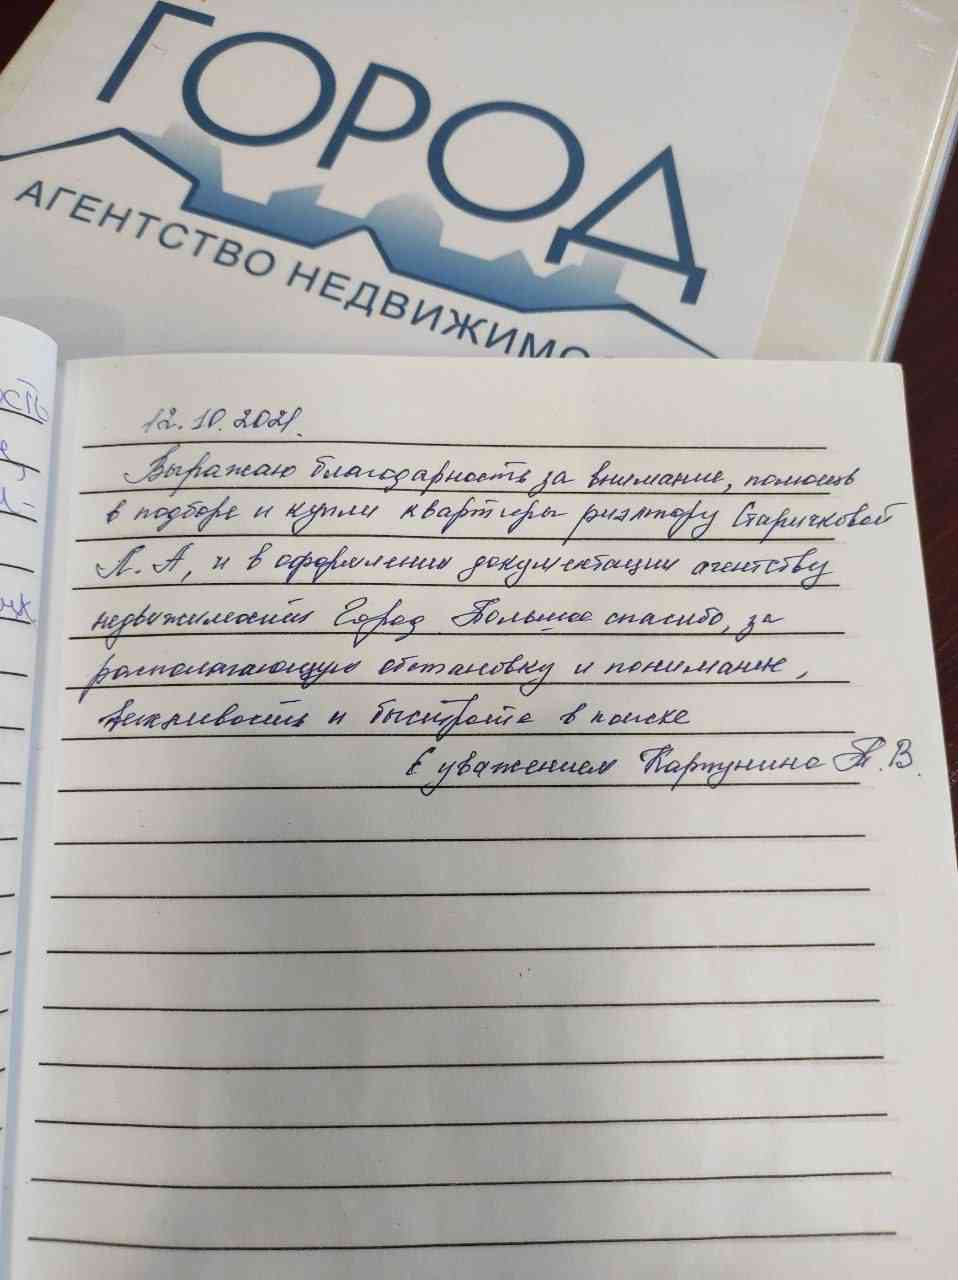 ГОРОД
АГЕНТСТВО НЕДВИЖИМО
12.10.2021.
Выражаю благодарность за внимание, помощь
в подборе и купли квартиры риэлтору Старичковой
Л. А, и в оформлении документации агентству
недвижимости Город Большое спасибо, за
располагающую обстановку и понимание,
вежливость и быстроте в поиске
С уважением Картунина Т. В.